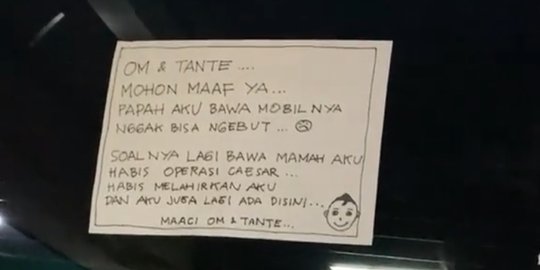 OM & TANTE ....
MOHON MAAF YA...
PAPAH AKU BAWA MOBILNYA
NGGAK BISA NGEBUT ... ☹
SOALNYA LAGI BAWA MAMAH AKU
HABIS OPERASI CAESAR ...
HABIS MELAHIRKAN AKU
DAN AKU JUGA LAGI ADA DISINI...
MAACI OM & TANTE...